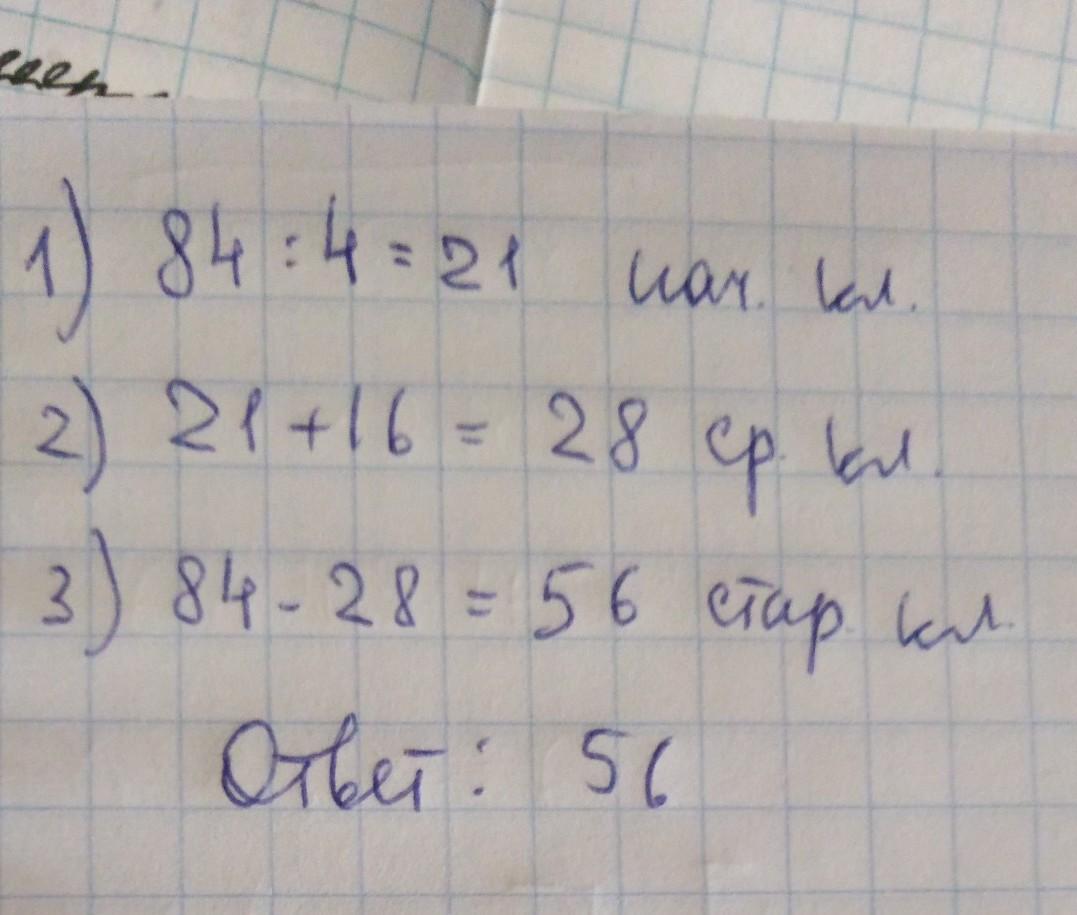 1) 84 : 4 = 21 нач. кл.
2) 21 + 16 = 28 ср. кл.
3) 84 - 28 = 56 стар. кл.
Ответ: 56